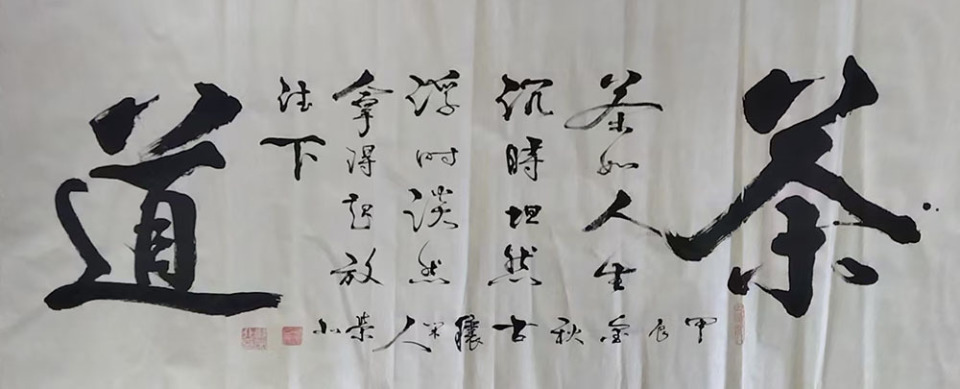 茶道
茶如人生
沉時坦然
浮时淡然
拿得起放
下
甲辰金秋古穰人荣